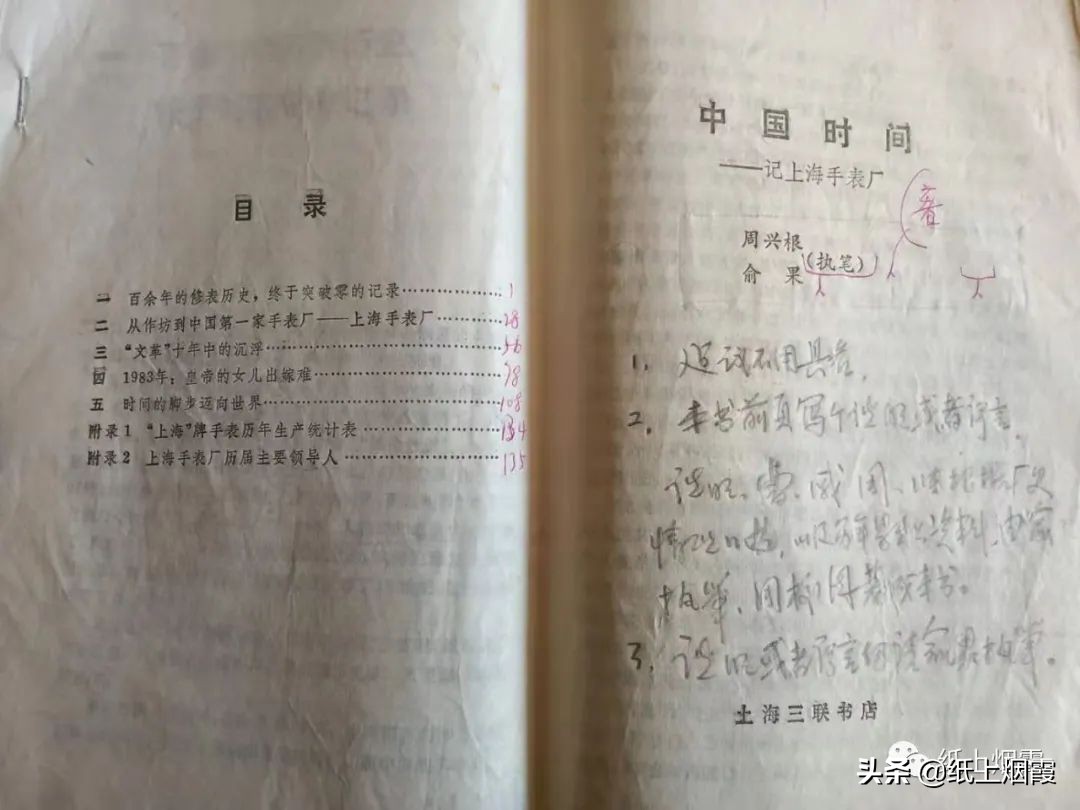 目 录
一 百余年的修表历史，终于突破零的记录………………1
二 从作坊到中国第一家手表厂——上海手表厂…………28
三 “文革”十年中的沉浮……………………………56
四 1983年：皇帝的女儿出嫁难……………………78
五 时间的脚步迈向世界……………………………108
附录1 “上海”牌手表历年生产统计表………………134
附录2 上海手表厂历届主要领导人…………………135
中国时间
——记上海手表厂
著
周兴根
俞 果（执笔）
1，建议不用具名，
2，本书前页写个说明或者序言，
3，说明或者序言仍请俞果执笔。
上海三联书店
纸上烟霞
头条 @纸上烟霞